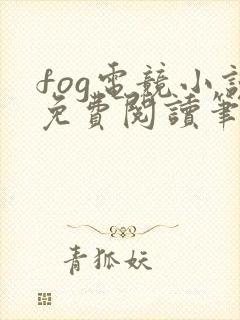 fog電競小說
免費閱讀筆
青狐妖